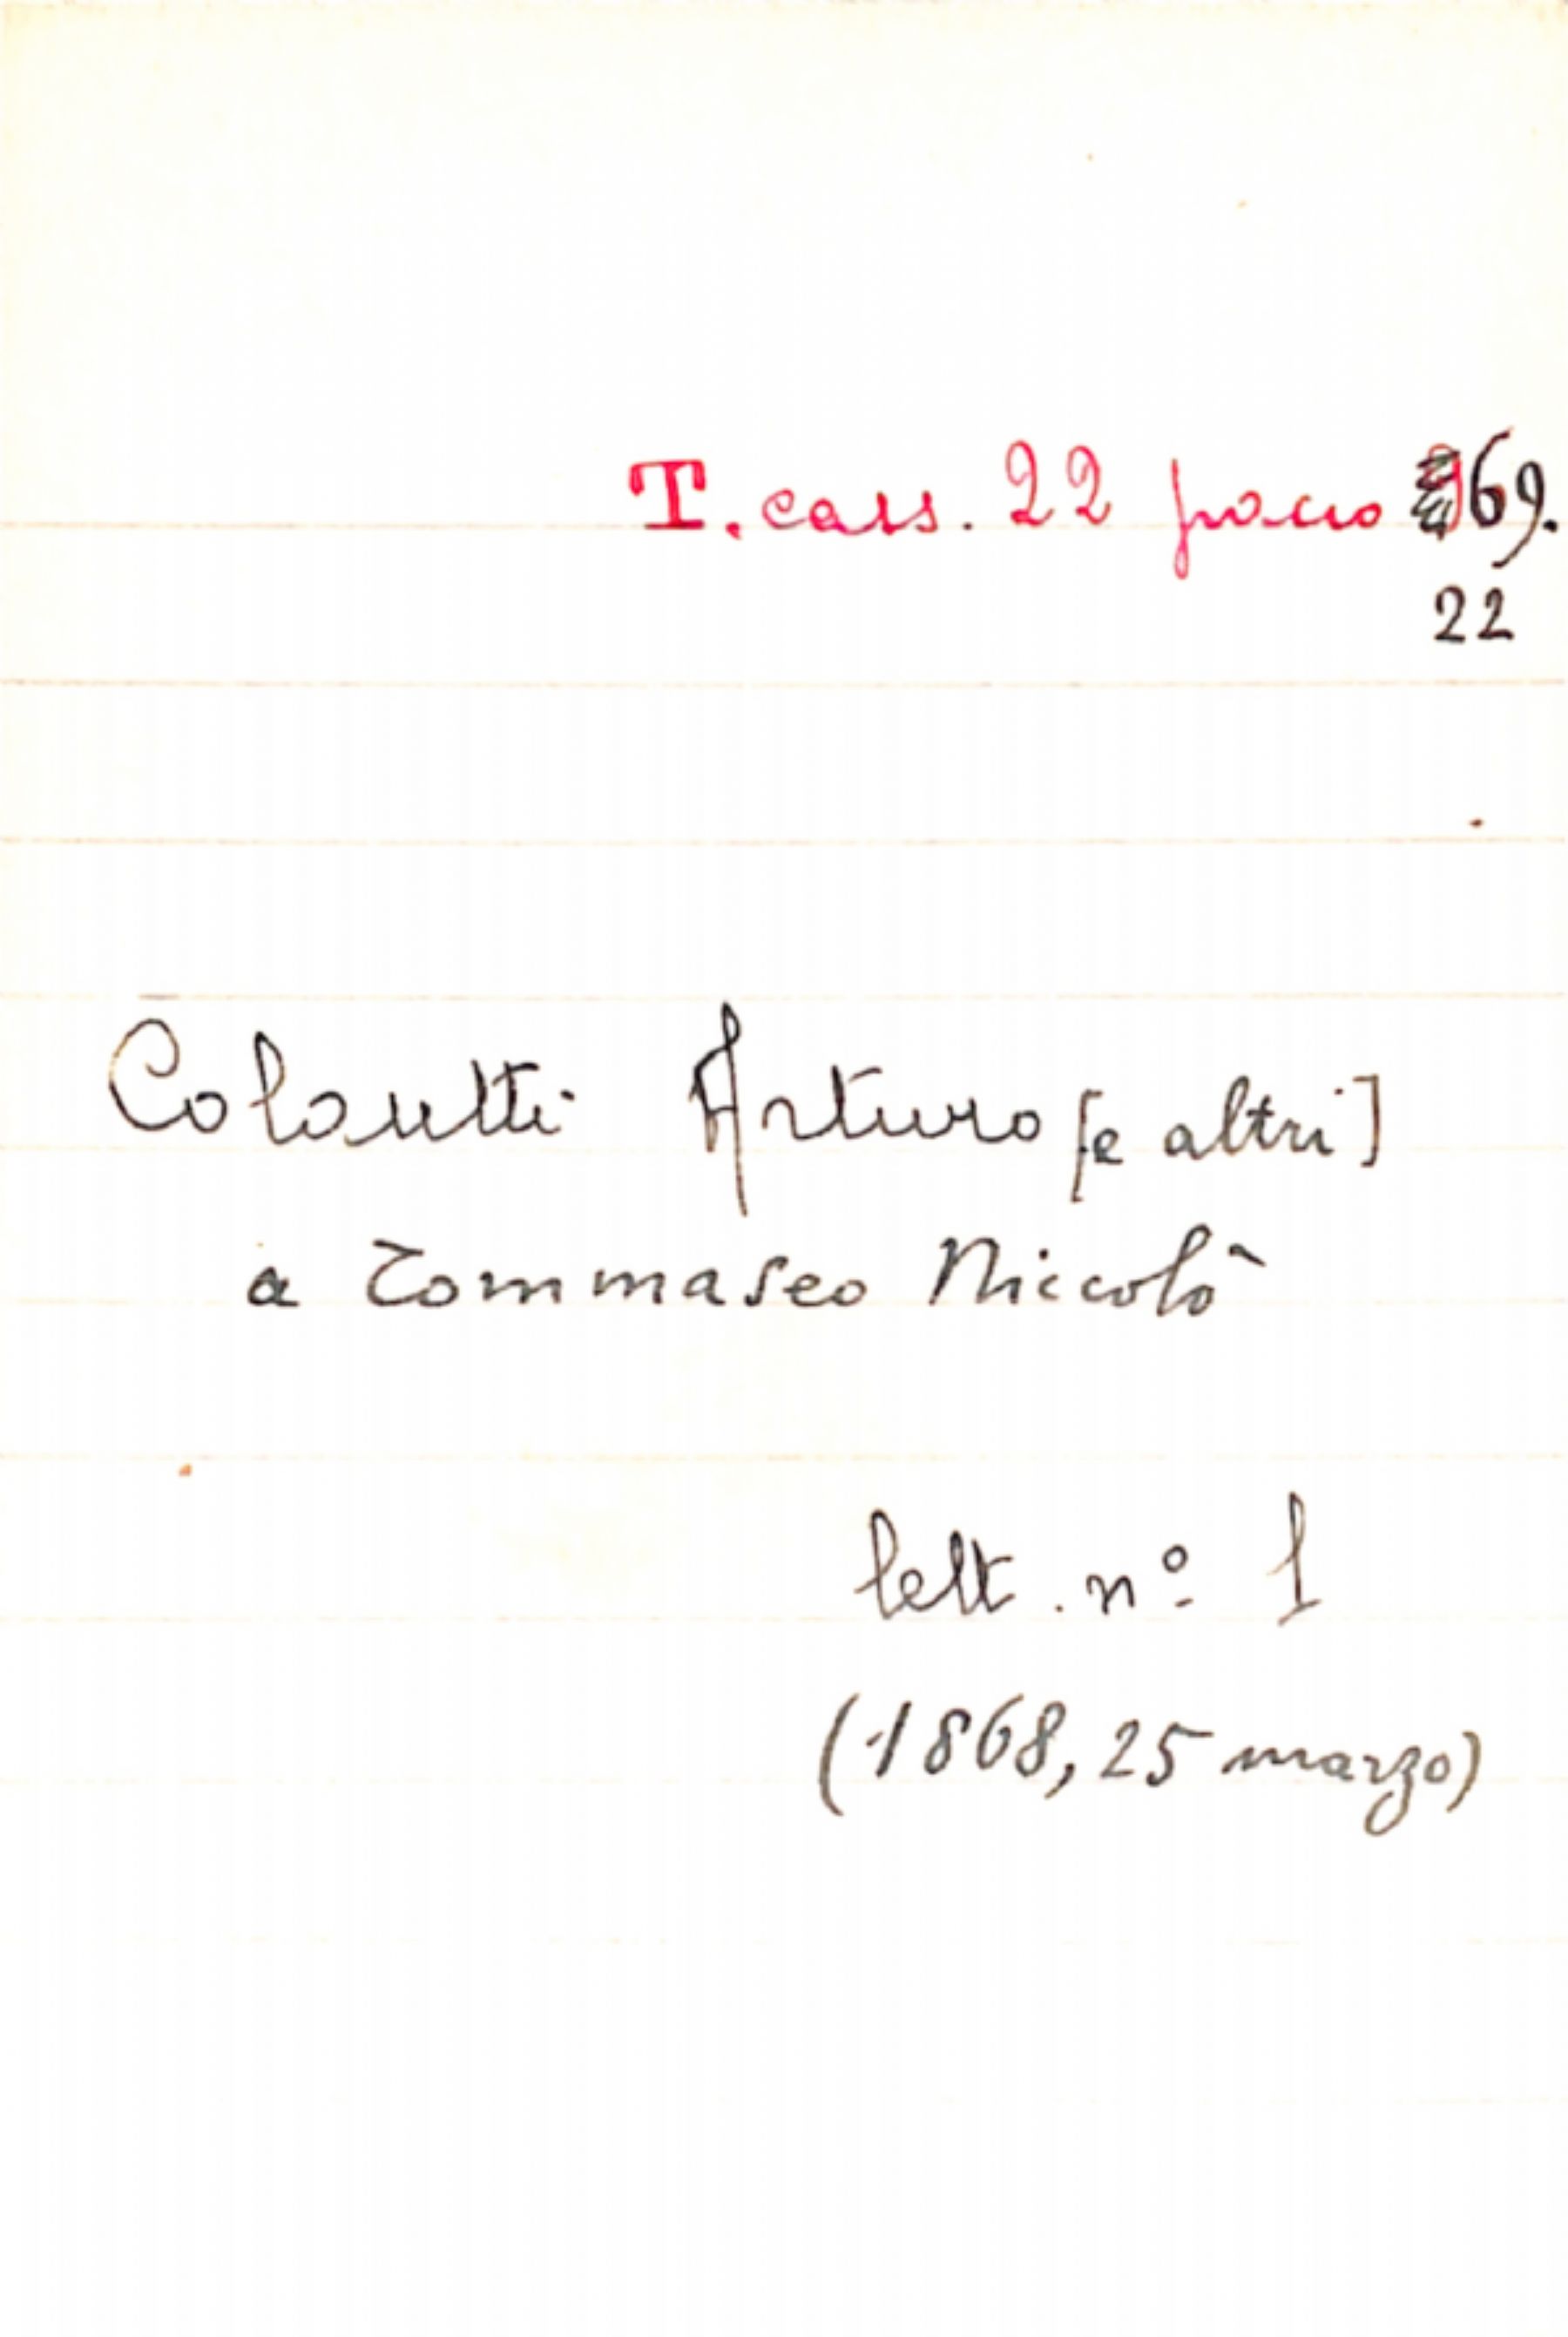 T. cass. 22 pacco 69.
22
Colautti Arturo [e altri]
a Tommaseo Niccolò
lett. nº 1
(1868, 25 marzo)